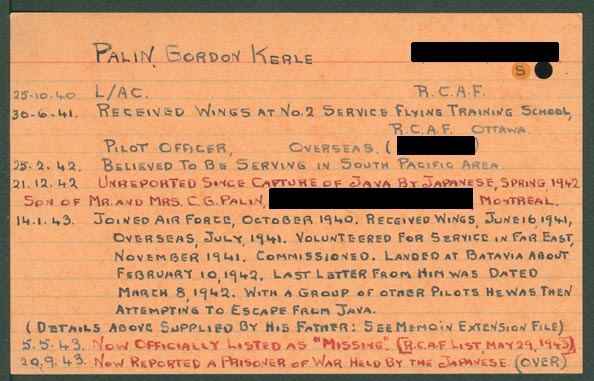 PALIN, GORDON KERLE
S
25-10-40 L/AC. R.C.A.F.
30-6-41. RECEIVED WINGS AT NO.2 SERVICE FLYING TRAINING SCHOOL,
R.C.A.F. OTTAWA.
PILOT OFFICER, OVERSEAS. ( )
25.2.42. BELIEVED TO BE SERVING IN SOUTH PACIFIC AREA.
21.12.42 UNREPORTED SINCE CAPTURE OF JAVA BY JAPANESE, SPRING 1942
SON OF MR. AND MRS. C.G. PALIN, MONTREAL.
14.1.43. JOINED AIR FORCE, OCTOBER 1940. RECEIVED WINGS, JUNE 16, 1941,
OVERSEAS, JULY, 1941. VOLUNTEERED FOR SERVICE IN FAR EAST,
NOVEMBER 1941. COMMISSIONED. LANDED AT BATAVIA ABOUT
FEBRUARY 10, 1942. LAST LETTER FROM HIM WAS DATED
MARCH 8, 1942. WITH A GROUP OF OTHER PILOTS HE WAS THEN
ATTEMPTING TO ESCAPE FROM JAVA.
(DETAILS ABOVE SUPPLIED BY HIS FATHER: SEE MEMO IN EXTENSION FILE)
5.5.43. NOW OFFICIALLY LISTED AS "MISSING". (R.C.A.F. LIST, MAY 29, 1943)
20.9.43. NOW REPORTED A PRISONER OF WAR HELD BY THE JAPANESE. (OVER)